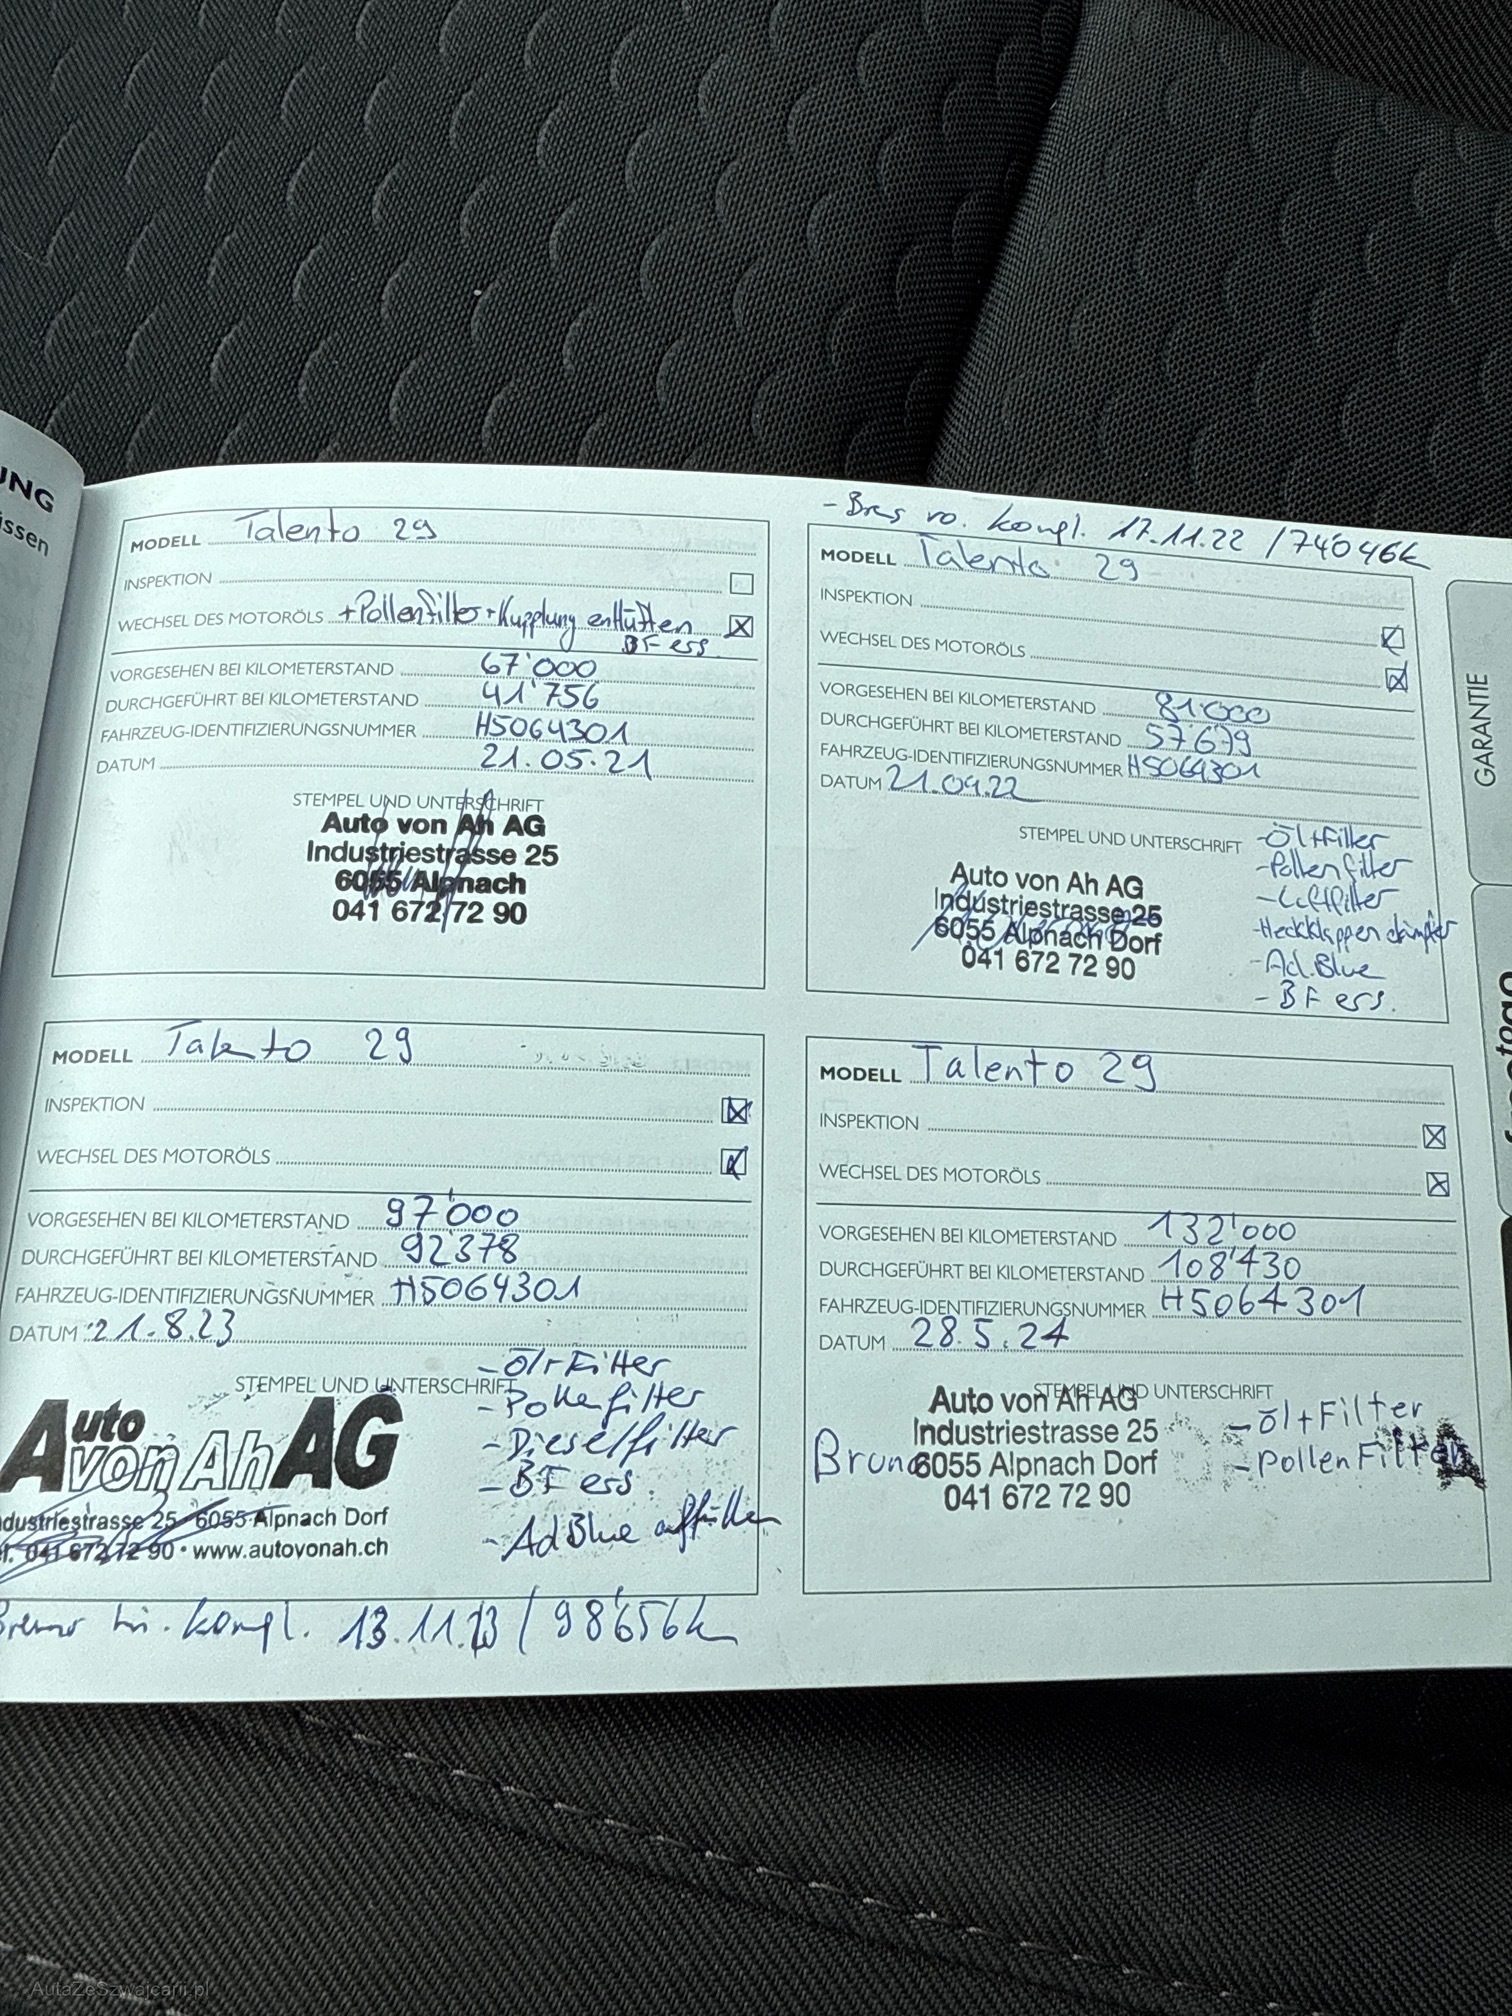 UNG
ssen
MODELL Talento 29
INSPEKTION
WECHSEL DES MOTORÖLS + Pollenfilter + Kupplung entlüften
BF ers.
VORGESEHEN BEI KILOMETERSTAND 67'000
DURCHGEFÜHRT BEI KILOMETERSTAND 41'756
FAHRZEUG-IDENTIFIZIERUNGSNUMMER H5064301
DATUM 21.05.21
STEMPEL UND UNTERSCHRIFT
Auto von Ah AG
Industriestrasse 25
6055 Alpnach
041 672 72 90
- vo. kompl. 17.11.22 / 74'046k
MODELL Talento 29
INSPEKTION
WECHSEL DES MOTORÖLS
VORGESEHEN BEI KILOMETERSTAND 81'000
DURCHGEFÜHRT BEI KILOMETERSTAND 57'679
FAHRZEUG-IDENTIFIZIERUNGSNUMMER H5064301
DATUM 21.04.22
STEMPEL UND UNTERSCHRIFT
Auto von Ah AG
Industriestrasse 25
6055 Alpnach Dorf
041 672 72 90
- Öl+Filter
- Pollenfilter
- Luftfilter
- Heckklappendämpfer
- Ad.Blue
- BF ers.
MODELL Talento 29
INSPEKTION
WECHSEL DES MOTORÖLS
VORGESEHEN BEI KILOMETERSTAND 97'000
DURCHGEFÜHRT BEI KILOMETERSTAND 92'378
FAHRZEUG-IDENTIFIZIERUNGSNUMMER H5064301
DATUM 21.8.23
STEMPEL UND UNTERSCHRIFT
Auto von Ah AG
dustriestrasse 25 · 6055 Alpnach Dorf
l. 041 672 72 90 · www.autovonah.ch
- Öl+Filter
- Pollenfilter
- Dieselfilter
- BF ers.
- AdBlue auffüllen
hi. kompl. 13.11.23 / 98'656k
MODELL Talento 29
INSPEKTION
WECHSEL DES MOTORÖLS
VORGESEHEN BEI KILOMETERSTAND 132'000
DURCHGEFÜHRT BEI KILOMETERSTAND 108'430
FAHRZEUG-IDENTIFIZIERUNGSNUMMER H5064301
DATUM 28.5.24
STEMPEL UND UNTERSCHRIFT
Auto von Ah AG
Industriestrasse 25
Bruno 6055 Alpnach Dorf
041 672 72 90
- Öl+Filter
- PollenFilter
GARANTIE
AutaZeSzwajcarii.pl